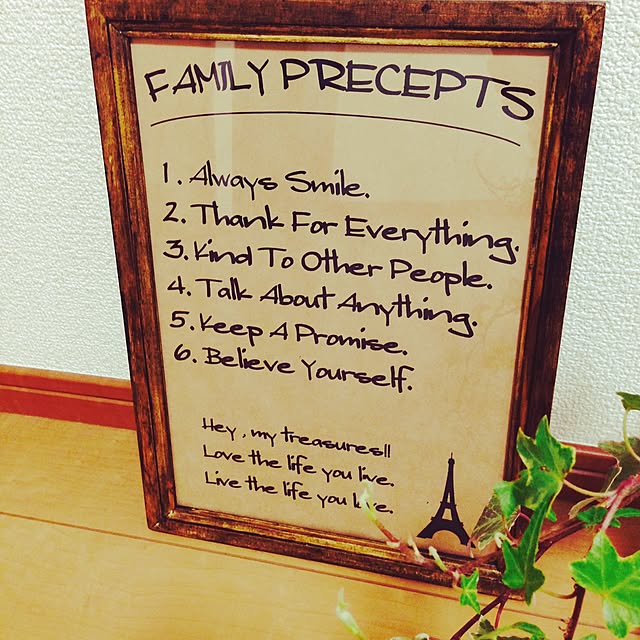 FAMILY PRECEPTS
1. Always Smile.
2. Thank For Everything.
3. Kind To Other People.
4. Talk About Anything.
5. Keep A Promise.
6. Believe Yourself.
Hey, my treasures!!
Love the life you live.
Live the life you love.